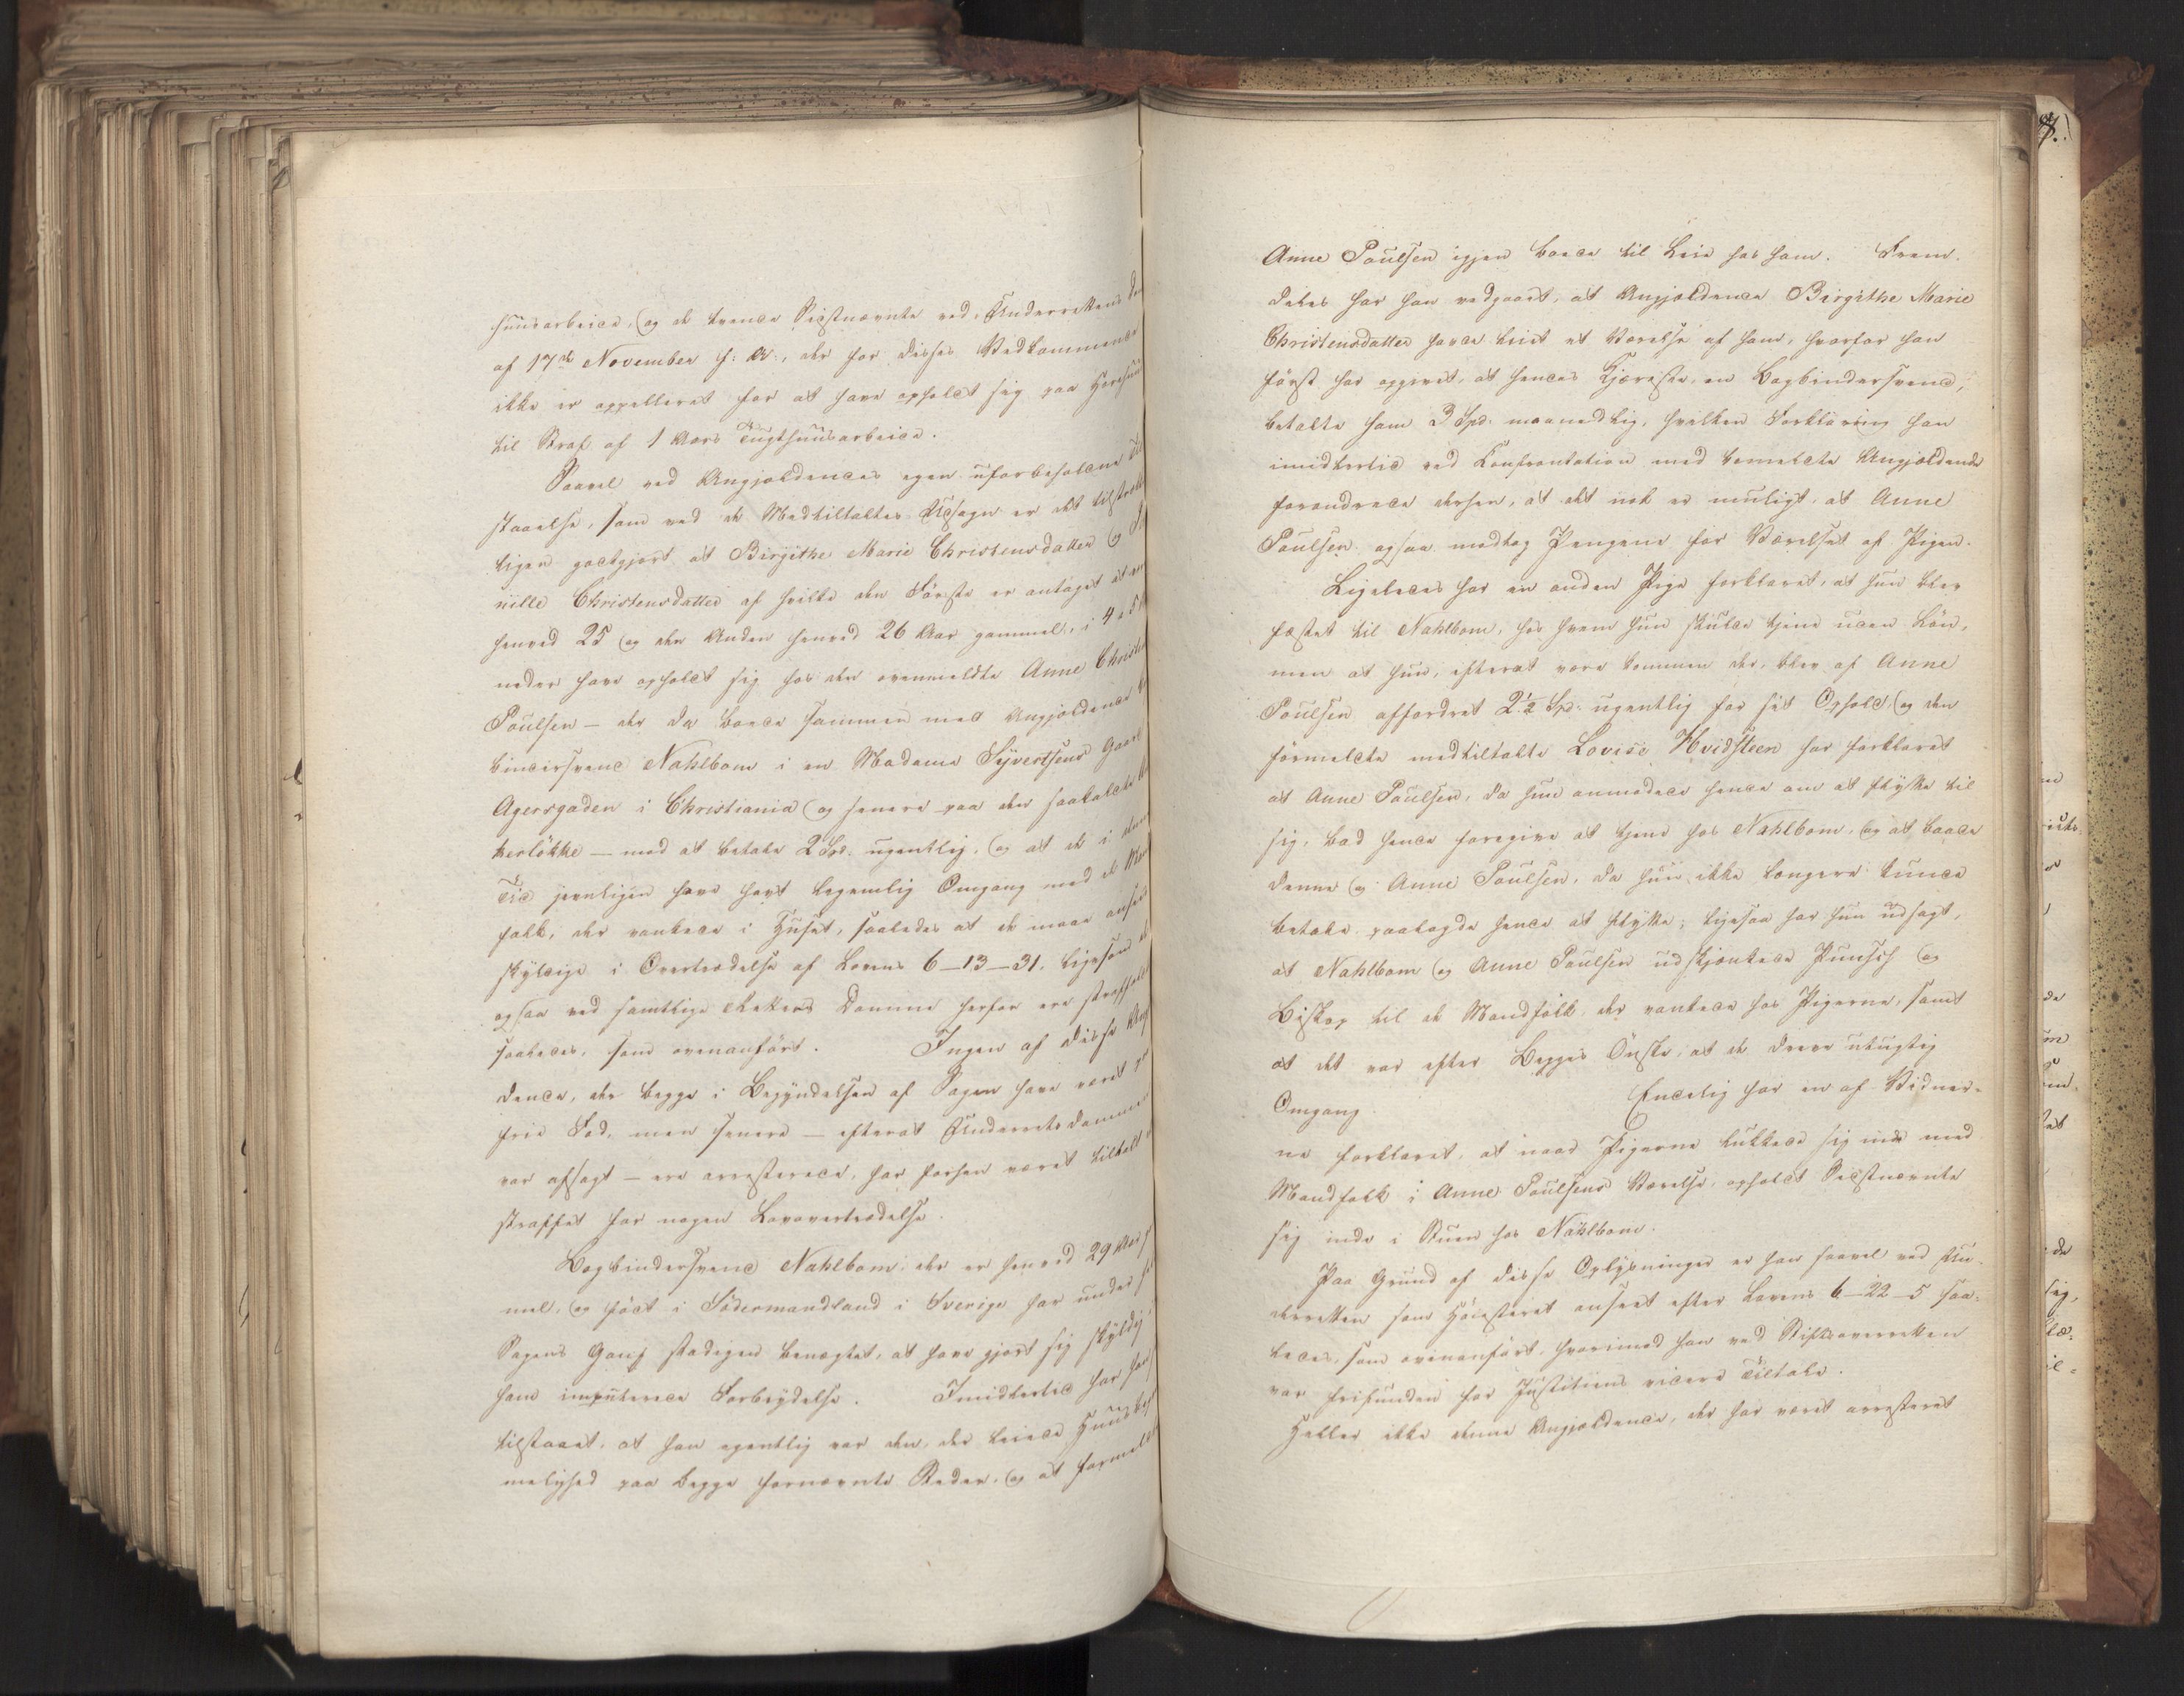 huusarbeide, og de tvende Sidstnævnte ved Underrettens
af 17de November f: A:, der for disses Vedkommende
ikke er appelleret for at have opholdt sig paa Horehuus
til Straf af 1 Aars Tugthuusarbeide.
Saavel ved Angjældendes egen uforbeholdne
staaelse, som ved de Medtiltaltes Udsagn er det tilstræk
ligen godtgjort at Birgithe Marie Christensdatter og
nille Christensdatter af hvilke den Første er antaget at
henved 25 og den Anden henved 26 Aar gammel, i 4 a 5
neder have opholdt sig hos den ovenmeldte Anne Christe
Poulsen – der da boede sammen med Angjældende
bindersvend Nahlbom i en Madame Syvertsens Gaard
Agersgaden i Christiania og senere paa den saakaldte
kerløkke – mod at betale 2 Spd. ugentlig, og at de i denne
Tid jevnligen have havt legemlig Omgang med de Mand
folk, der vankede i Huset, saaledes at de maae ansees
skyldige i Overtrædelse af Lovens 6–13–31, ligesom de
ogsaa ved samtlige Retters Domme herfor ere straffældte
saaledes, som ovenanført. Ingen af disse Angjæl
dende, der begge i Begyndelsen af Sagen have været paa
frie Fod, men senere – efterat Underretsdommen
var afsagt – ere arresterede, har forhen været tiltalt
straffet for nogen Lovovertrædelse.
Bogbindersvend Nahlbom, der er henved 29 Aar
mel, og født i Södermandland i Sverige har under
Sagens Gang stadigen benægtet, at have gjort sig skyldig
ham imputerede Forbrydelse. Imidlertid har han
tilstaaet, at han egentlig var den, der leiede Huus
melighed paa begge fornævnte Steder, og at formeldte
Anne Poulsen igjen boede til Leie hos ham. Frem-
deles har han vedgaaet, at Angjældende Birgithe Marie
Christensdatter havde leiet et Værelse af ham, hvorfor han
først har opgivet, at hendes Kjæreste, en Bogbindersvend,
betalte ham 3 Spd. maanedlig, hvilken Forklaring han
imidlertid ved Confrontation med bemeldte Angjældende
forandrede derhen, at det nok er muligt, at Anne
Poulsen ogsaa modtog Pengene for Værelset af Pigen.
Ligeledes har en anden Pige forklaret, at hun blev
fæstet til Nahlbom, hos hvem hun skulde tjene uden Løn,
men at hun, efterat være kommen der, blev af Anne
Poulsen affordret 2 1/2 Spd. ugentlig for sit Ophold, og den
førmeldte medtiltalte Lovise Hvidsteen har forklaret
at Anne Poulsen, da hun anmodede hende om at flytte til
sig, bad hende foregive at tjene hos Nahlbom, og at baade
denne og Anne Poulsen, da hun ikke længere kunde
betale paalagde hende at flytte; ligesaa har hun udsagt,
at Nahlbom og Anne Poulsen udskjænkede Punsch og
Biskop til de Mandfolk, der vankede hos Pigerne, samt
at det var efter Begges Ønske, at de drive utugtig
Omgang. Endelig har en af Vidner-
ne forklaret, at naar Pigerne lukkede sig inde med
Mandfolk i Anne Poulsens Værelse, opholdt Sidstnævnte
sig inde i Stuen hos Nahlbom.
Paa Grund af disse Oplysninger er han saavel ved Un-
derretten som Høiesteret anseet efter Lovens 6–22–5 saa-
ledes, som ovenanført, hvorimod han ved Stiftsoverretten
var frifunden for Justitiens videre Tiltale.
Heller ikke denne Angjældende, der har været arresteret